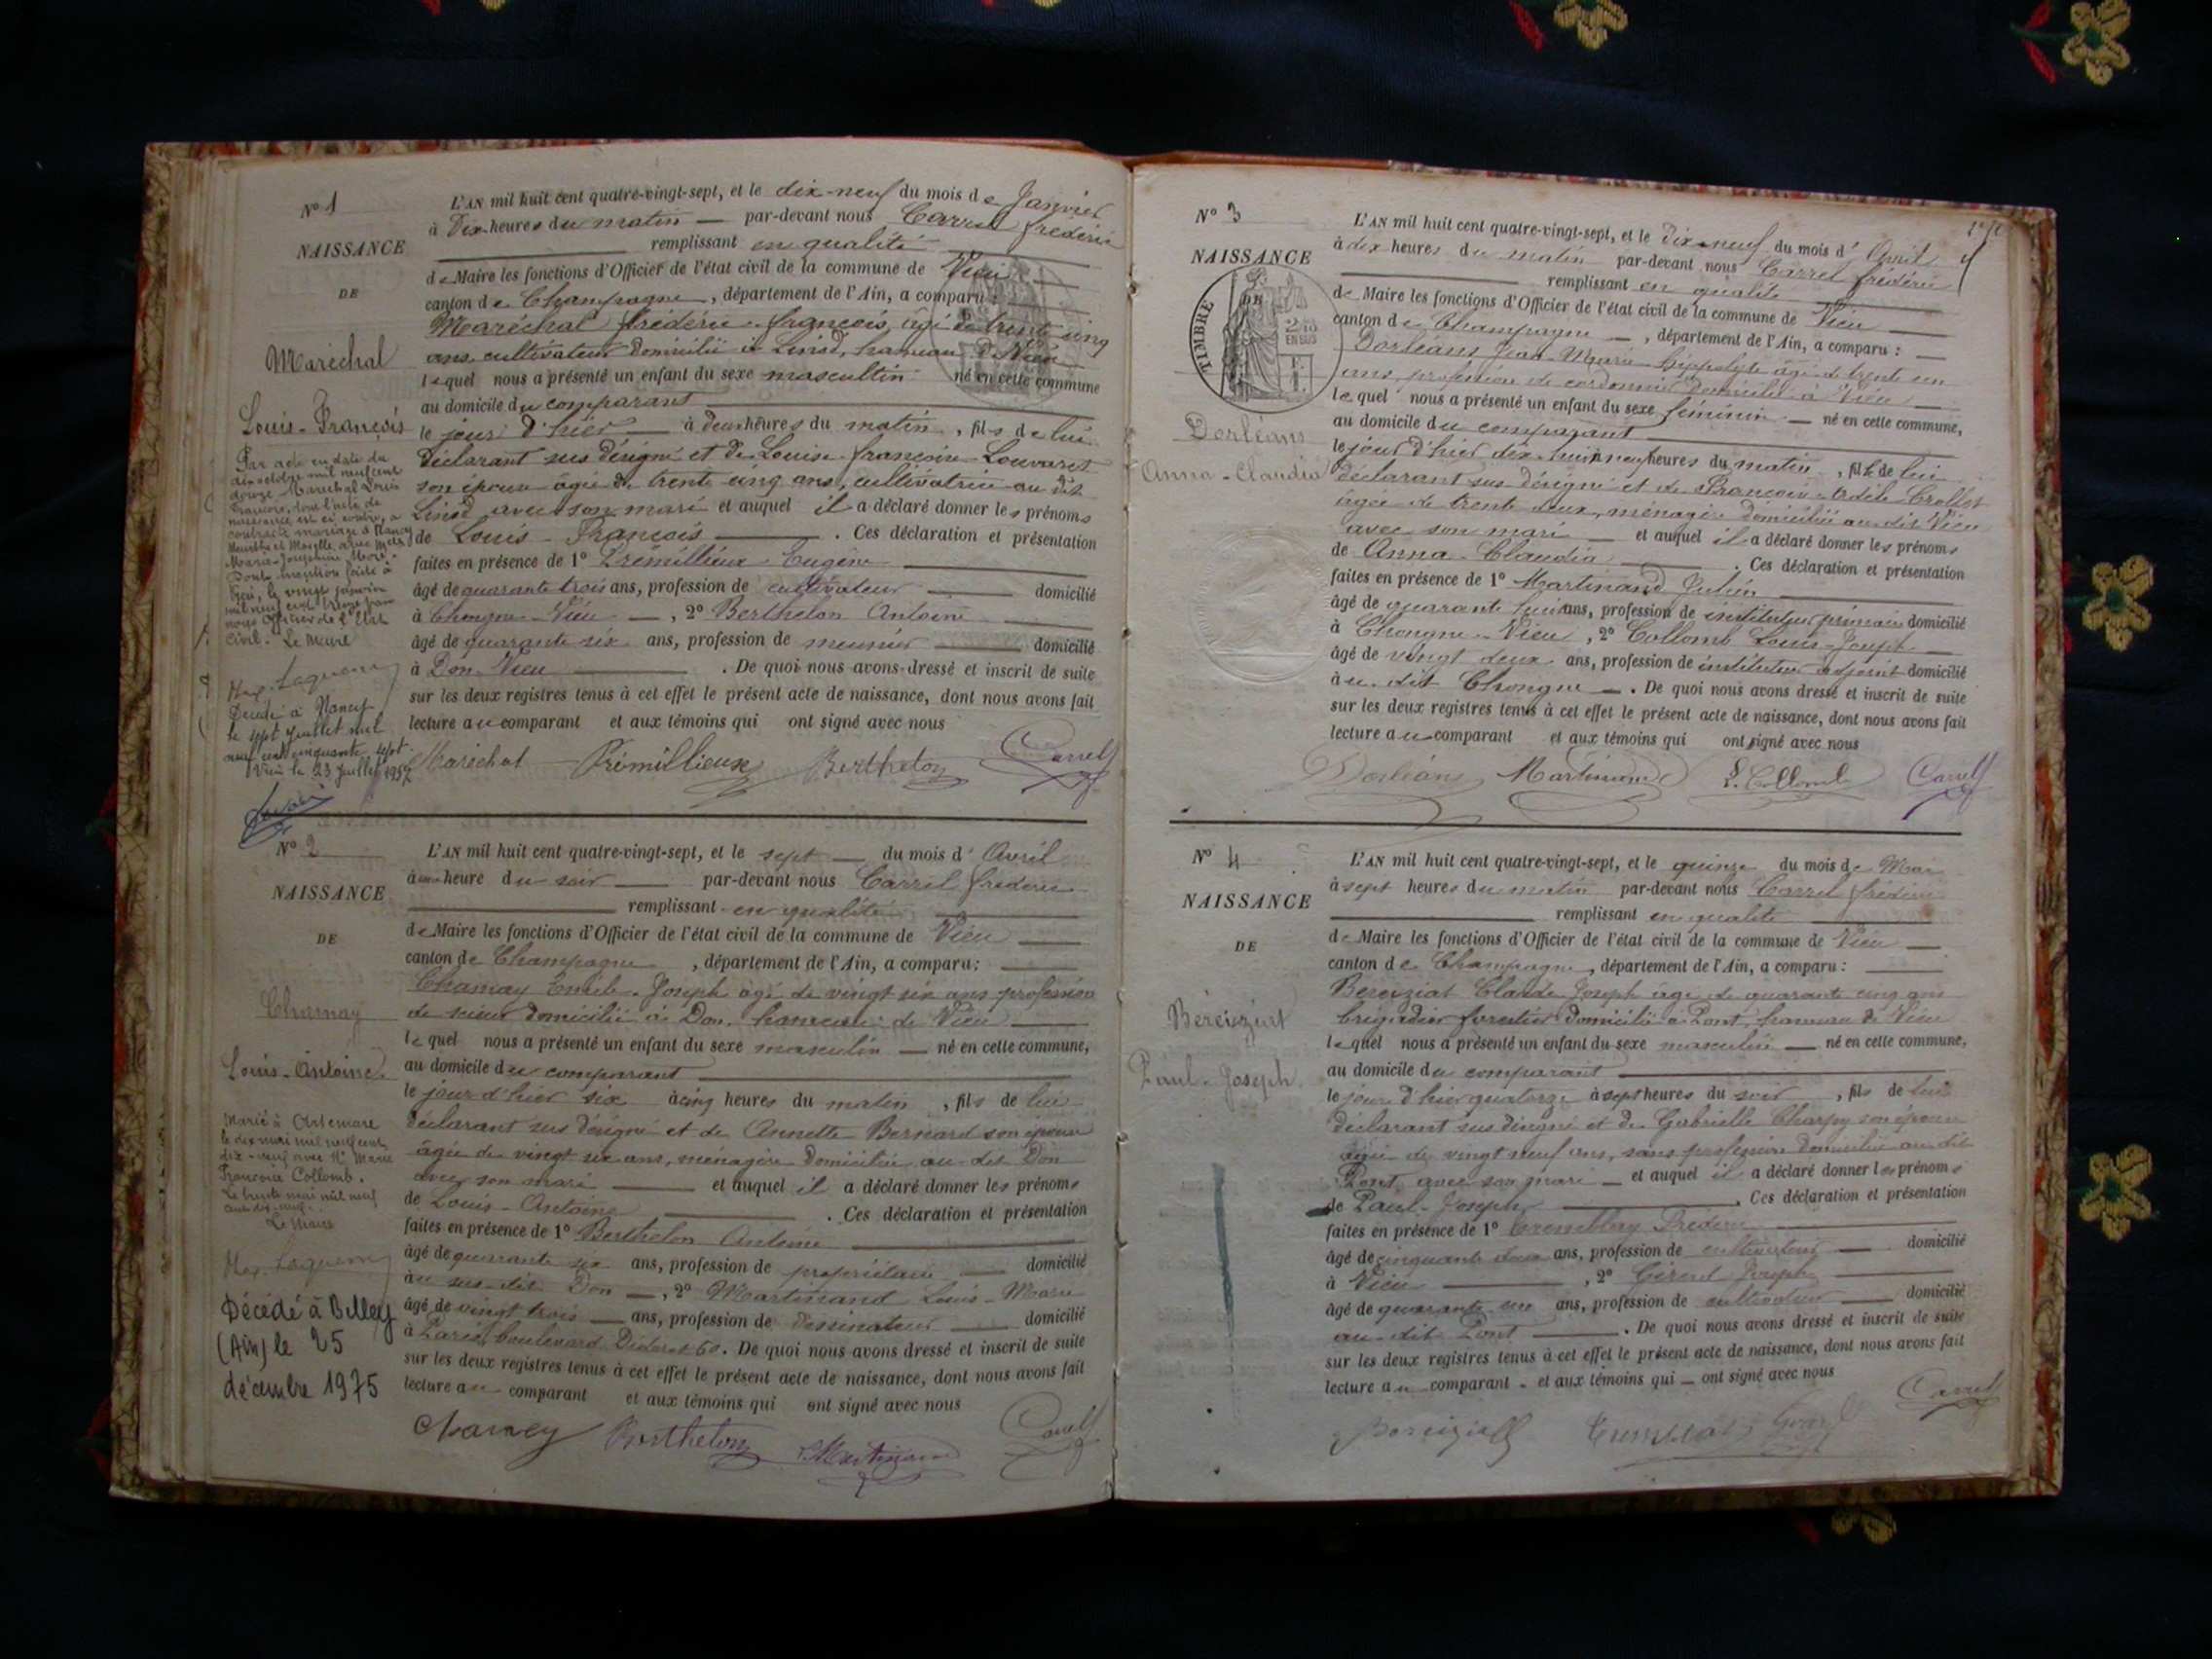 N° 1
NAISSANCE
DE
Maréchal
Louis-François
Par acte en date du
dix octobre mil neuf cent
douze, Maréchal Louis
François, dont l'acte de
naissance est ci contre, a
contracté mariage à Nancy
Meurthe et Moselle avec Melle
Marie-Joséphine
Dont mention faite à
Vieu, le vingt janvier
mil neuf cent treize par
nous Officier de l'Etat
civil. Le Maire
Décédé à Nancy
le sept juillet mil
neuf cent cinquante sept.
Vieu le 23 juillet 1957
L'AN mil huit cent quatre-vingt-sept, et le dix-neuf du mois de Janvier
à Dix heures du matin — par-devant nous Carrel frédéric
remplissant en qualité
de Maire les fonctions d'Officier de l'état civil de la commune de Vieu
canton de Champagne, département de l'Ain, a comparu :
Maréchal frédéric-françois, âgé de trente cinq
ans, cultivateur domicilié à Linod, hameau de Vieu
lequel nous a présenté un enfant du sexe masculin né en cette commune
au domicile du comparant
le jour d'hier — à deux heures du matin, fils de lui
déclarant sus désigné et de Louise françoise Louvaret
son épouse agée de trente cinq ans, cultivatrice au dit
Linod avec son mari et auquel il a déclaré donner les prénoms
de Louis-François. Ces déclaration et présentation
faites en présence de 1° Prémillieux Eugène
âgé de quarante trois ans, profession de cultivateur — domicilié
à Chongne-Vieu —, 2° Berthelon Antoine
âgé de quarante six ans, profession de meunier — domicilié
à Don-Vieu. De quoi nous avons dressé et inscrit de suite
sur les deux registres tenus à cet effet le présent acte de naissance, dont nous avons fait
lecture au comparant et aux témoins qui ont signé avec nous
Maréchal Prémillieux Berthelon Carrel
N° 2
NAISSANCE
DE
Chamay
Louis-Antoine
Marié à Artemare
le dix mai mil neuf cent
dix-neuf avec Me Marie
Françoise Collomb.
Le trente mai mil neuf
cent dix-neuf.
Le Maire
Décédé à Belley
(Ain) le 25
décembre 1975
L'AN mil huit cent quatre-vingt-sept, et le sept — du mois d'Avril
à une heure du soir — par-devant nous Carrel frédéric
remplissant en qualité
de Maire les fonctions d'Officier de l'état civil de la commune de Vieu
canton de Champagne, département de l'Ain, a comparu :
Chamay Emile-Joseph âgé de vingt six ans profession
de scieur domicilié à Don, hameau de Vieu
lequel nous a présenté un enfant du sexe masculin — né en cette commune,
au domicile du comparant
le jour d'hier six à cinq heures du matin, fils de lui
déclarant sus désigné et de Annette Bernard son épouse
âgée de vingt six ans, ménagère domiciliée au-dit Don
avec son mari — et auquel il a déclaré donner les prénoms
de Louis-Antoine. Ces déclaration et présentation
faites en présence de 1° Berthelon Antoine
âgé de quarante six ans, profession de propriétaire — domicilié
au sus-dit Don —, 2° Martinand Louis-Marie
âgé de vingt trois — ans, profession de dessinateur — domicilié
à Paris, boulevard Diderot 60. De quoi nous avons dressé et inscrit de suite
sur les deux registres tenus à cet effet le présent acte de naissance, dont nous avons fait
lecture au comparant et aux témoins qui ont signé avec nous
Chamay Berthelon Martinand Carrel
N° 3
NAISSANCE
DE
TIMBRE
Dorléans
Anna-Claudia
L'AN mil huit cent quatre-vingt-sept, et le dix-neuf du mois d'Avril
à dix heures du matin par-devant nous Carrel frédéric
remplissant en qualité
de Maire les fonctions d'Officier de l'état civil de la commune de Vieu
canton de Champagne —, département de l'Ain, a comparu :
Dorléans Jean-Marie Hippolyte âgé de trente un
ans, profession de cordonnier domicilié à Vieu
lequel nous a présenté un enfant du sexe féminin — né en cette commune,
au domicile du comparant
le jour d'hier dix-huit à neuf heures du matin, fille de lui
déclarant sus désigné et de Françoise Adèle Crollet
âgée de trente deux, ménagère domiciliée au dit Vieu
avec son mari — et auquel il a déclaré donner les prénoms
de Anna-Claudia. Ces déclaration et présentation
faites en présence de 1° Martinand Julien
âgé de quarante huit ans, profession de instituteur primaire domicilié
à Chongne-Vieu, 2° Collomb Louis-Joseph
âgé de vingt deux ans, profession de instituteur adjoint domicilié
au dit Chongne —. De quoi nous avons dressé et inscrit de suite
sur les deux registres tenus à cet effet le présent acte de naissance, dont nous avons fait
lecture au comparant et aux témoins qui ont signé avec nous
Dorléans Martinand L. Collomb Carrel
N° 4
NAISSANCE
DE
Béreiziat
Paul-Joseph
L'AN mil huit cent quatre-vingt-sept, et le quinze du mois de Mai
à sept heures du matin par-devant nous Carrel frédéric
remplissant en qualité
de Maire les fonctions d'Officier de l'état civil de la commune de Vieu
canton de Champagne, département de l'Ain, a comparu :
Bereiziat Claude Joseph âgé de quarante cinq ans
brigadier forestier domicilié à Pont, hameau de Vieu
lequel nous a présenté un enfant du sexe masculin — né en cette commune,
au domicile du comparant
le jour d'hier quatorze à sept heures du soir, fils de lui
déclarant sus désigné et de Gabrielle Charpy son épouse
âgée de vingt neuf ans, sans profession domiciliée au dit
Pont avec son mari — et auquel il a déclaré donner les prénoms
de Paul-Joseph. Ces déclaration et présentation
faites en présence de 1° Tremblay Frédéric
âgé de cinquante deux ans, profession de cultivateur — domicilié
à Vieu, 2° Girod Joseph
âgé de quarante un ans, profession de cultivateur — domicilié
au dit Pont. De quoi nous avons dressé et inscrit de suite
sur les deux registres tenus à cet effet le présent acte de naissance, dont nous avons fait
lecture au comparant - et aux témoins qui — ont signé avec nous
Bereiziat Girod Carrel